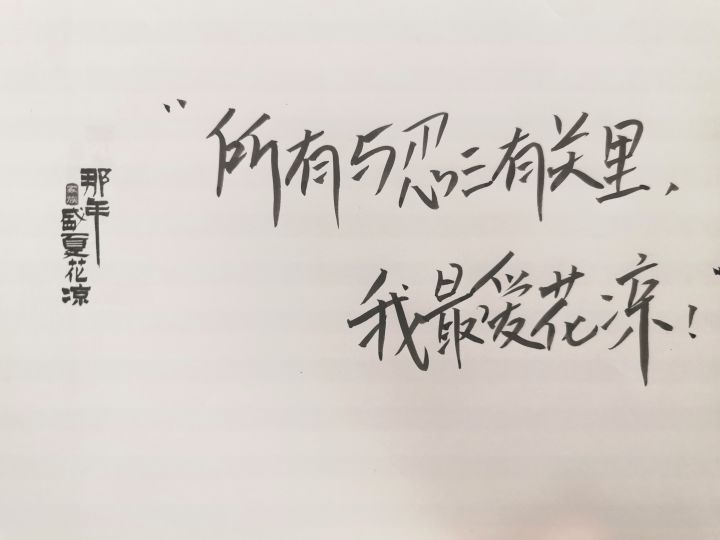 “所有与忍三有关里，
我最爱花凉！”
那年
盛夏花凉
家族